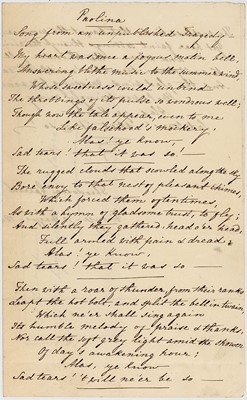 Paolina
Song from an unpublished Tragedy
My heart was once a joyous matin bell,
Answering blithe music to the summer wind,
Whose sweetness could unbind
The throbbings of its pulse so wondrous well;
Though now the tale appear, even to me
Like falsehood's mockery;
Alas! ye know,
Sad tears! that it was so! —
The rugged clouds that scowled along the sky
Bore envy to that nest of pleasant chimes,
Which forced them oftentimes,
As with a hymn of gladsome trust, to fly;
And silently they gathered, head o'er head,
Full armed with pain & dread;
Alas! ye know,
Sad tears! that it was so —
Then with a roar of thunder, from their ranks
Leapt the hot bolt, and split the bell in twain,
Which ne'er shall sing again
Its humble melody of praise & thanks,
Nor call the soft grey light amid the shower
Of day's awakening hour;
Alas, ye know
Sad tears! 't will ne'er be so —